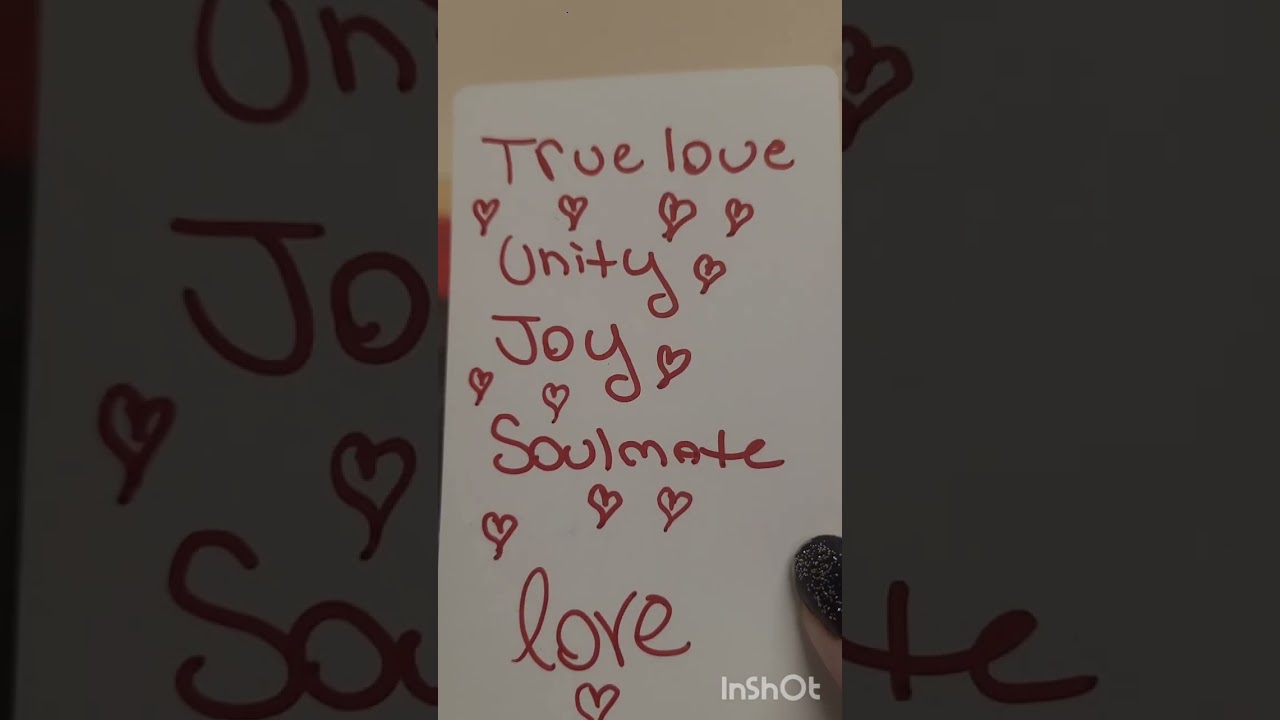 True love
Unity
Joy
Soulmate
love
InShOt